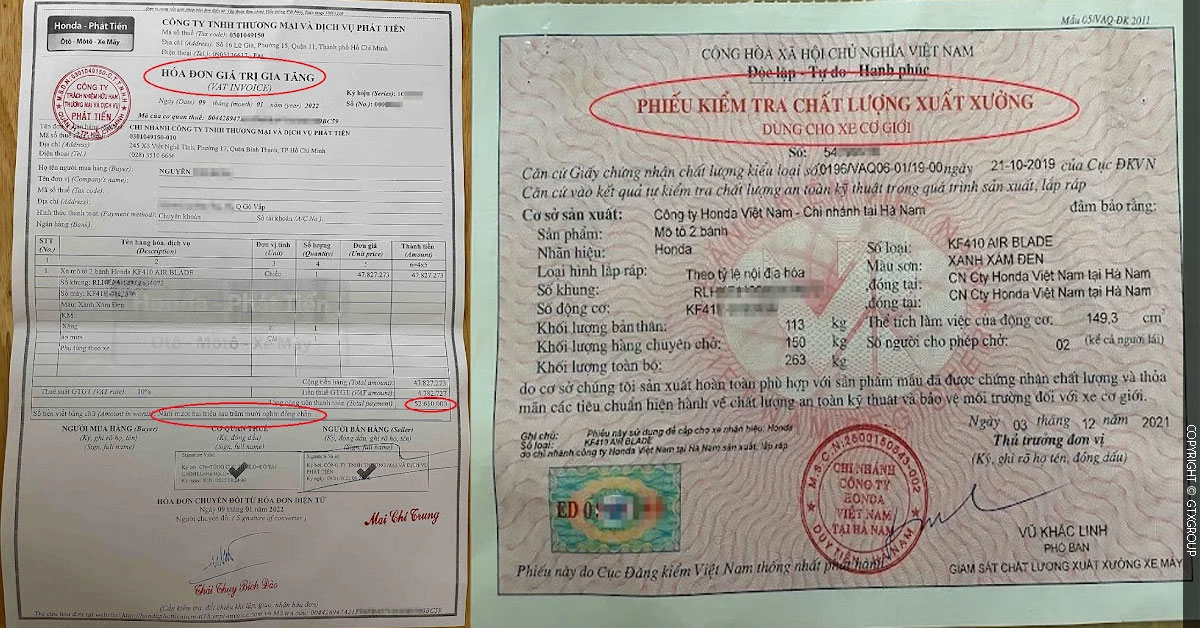 Honda - Phát Tiến
Ôtô - Môtô - Xe Máy
CÔNG TY TNHH THƯƠNG MẠI VÀ DỊCH VỤ PHÁT TIẾN
Mã số thuế (Tax code): 0301049150
Địa chỉ (Address): Số 16 Lữ Gia, Phường 15, Quận 11, Thành phố Hồ Chí Minh
Điện thoại (Tel.):
HÓA ĐƠN GIÁ TRỊ GIA TĂNG
(VAT INVOICE)
Ngày (Date) 09 tháng (month) 01 năm (year) 2022
Ký hiệu (Series): 1C
Số (No.): 000
Mã của cơ quan thuế: 004428947
CÔNG TY
TRÁCH NHIỆM HỮU HẠN
THƯƠNG MẠI VÀ DỊCH VỤ
PHÁT TIẾN
CHI NHÁNH CÔNG TY TNHH THƯƠNG MẠI VÀ DỊCH VỤ PHÁT TIẾN
Mã số thuế 0301049150-010
Địa chỉ (Address): 245 Xô Viết Nghệ Tĩnh, Phường 17, Quận Bình Thạnh, TP Hồ Chí Minh
Điện thoại (Tel.) (028) 3510 6666
Họ tên người mua hàng (Buyer): NGUYÊN
Tên đơn vị (Company's name):
Mã số thuế (Tax code):
Địa chỉ (Address): Q Gò Vấp
Hình thức thanh toán (Payment method): Chuyển khoản Số tài khoản (A/C No.):
Ngân hàng (Bank):
STT (No.) Tên hàng hóa, dịch vụ (Description) Đơn vị tính (Unit) Số lượng (Quantity) Đơn giá (Unit price) Thành tiền (Amount)
1 2 3 4 5 6=4x5
1 Xe mô tô 2 bánh Honda KF410 AIR BLADE Chiếc 1 47.827.273 47.827.273
Số khung: RLH
Số máy: KF41
Màu: Xanh Xám Đen
KM:
Xăng 1
áo mưa
Phụ tùng theo xe
Cộng tiền hàng (Total amount): 47.827.273
Thuế suất GTGT (VAT rate): 10% Tiền thuế GTGT (VAT amount): 4.782.727
Tổng cộng tiền thanh toán (Total payment): 52.610.000
Số tiền viết bằng chữ (Amount in words): Năm mươi hai triệu sáu trăm mười nghìn đồng chẵn
NGƯỜI MUA HÀNG (Buyer) CƠ QUAN THUẾ NGƯỜI BÁN HÀNG (Seller)
(Ký, ghi rõ họ, tên) (Ký, đóng dấu) (Ký, đóng dấu, ghi rõ họ, tên)
(Sign, full name) (Sign, full name) (Sign, full name)
HÓA ĐƠN CHUYỂN ĐỔI TỪ HÓA ĐƠN ĐIỆN TỬ
Ngày 09 / 01 / 2022
Người chuyển đổi: (Signature of converter)
Mai Chí Trung
Thái Thụy Bích Đào
(Cần kiểm tra, đối chiếu khi lập, giao, nhận hóa đơn)
Mẫu 05/VAQ-ĐK 2011
CỘNG HÒA XÃ HỘI CHỦ NGHĨA VIỆT NAM
Độc lập - Tự do - Hạnh phúc
PHIẾU KIỂM TRA CHẤT LƯỢNG XUẤT XƯỞNG
DÙNG CHO XE CƠ GIỚI
Số: 54
Căn cứ Giấy chứng nhận chất lượng kiểu loại số 0196/VAQ06-01/19-00 ngày 21-10-2019 của Cục ĐKVN
Căn cứ vào kết quả tự kiểm tra chất lượng an toàn kỹ thuật trong quá trình sản xuất, lắp ráp
Cơ sở sản xuất: Công ty Honda Việt Nam - Chi nhánh tại Hà Nam đảm bảo rằng:
Sản phẩm: Mô tô 2 bánh
Nhãn hiệu: Honda Số loại: KF410 AIR BLADE
Loại hình lắp ráp: Theo tỷ lệ nội địa hóa Màu sơn: XANH XÁM ĐEN
Số khung: RLH đóng tại: CN Cty Honda Việt Nam tại Hà Nam
Số động cơ: KF41 đóng tại: CN Cty Honda Việt Nam tại Hà Nam
Khối lượng bản thân: 113 kg Thể tích làm việc của động cơ: 149,3 cm³
Khối lượng hàng chuyên chở: 150 kg Số người cho phép chở: 02 (kể cả người lái)
Khối lượng toàn bộ: 263 kg
do cơ sở chúng tôi sản xuất hoàn toàn phù hợp với sản phẩm mẫu đã được chứng nhận chất lượng và thỏa
mãn các tiêu chuẩn hiện hành về chất lượng an toàn kỹ thuật và bảo vệ môi trường đối với xe cơ giới.
Ngày 03 tháng 12 năm 2021
Ghi chú: Phiếu này sử dụng để cấp cho xe nhãn hiệu: Honda
Số loại: KF410 AIR BLADE
do chi nhánh công ty Honda Việt Nam tại Hà Nam sản xuất, lắp ráp
Thủ trưởng đơn vị
(Ký, ghi rõ họ tên, đóng dấu)
ED 0
M.S.C.N: 2500150543-002
CHI NHÁNH
CÔNG TY
HONDA
VIỆT NAM
TẠI HÀ NAM
DUY TIÊN
VŨ KHẮC LINH
PHÓ BAN
GIÁM SÁT CHẤT LƯỢNG XUẤT XƯỞNG XE MÁY
Phiếu này do Cục Đăng kiểm Việt Nam thống nhất phát hành
COPYRIGHT © GTXGROUP